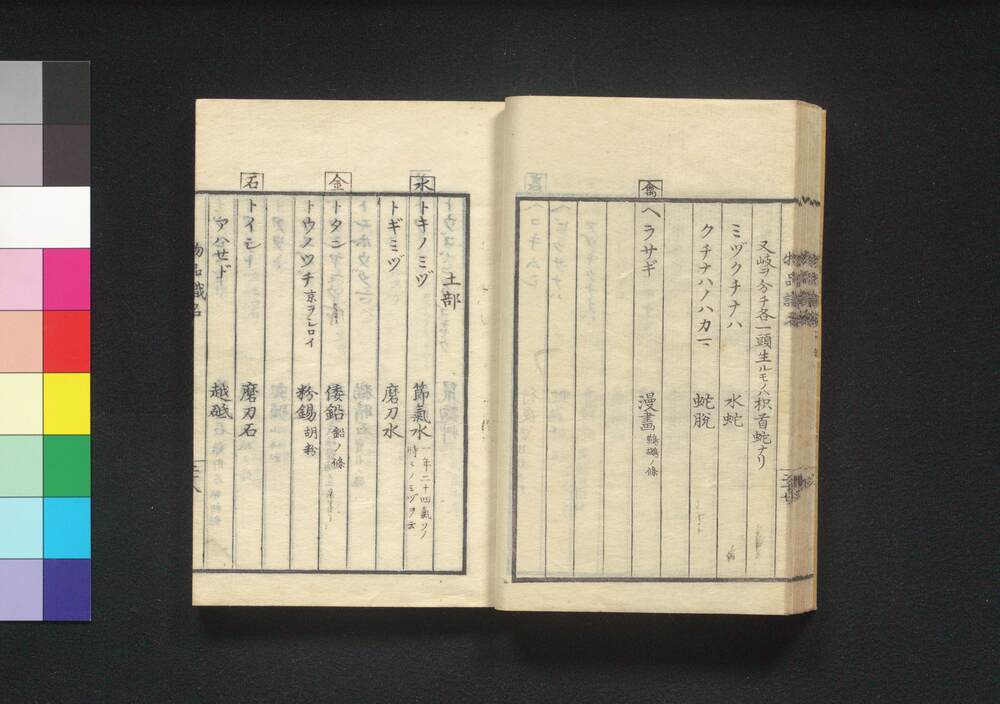 又岐ヲ分チ各一頭生ルモノハ枳首蛇ナリ
ミヅクチナハ 水蛇
クチナハノハカマ 蛇脱
禽
ヘラサギ 漫畫 鵜鶘ノ條
土部
水
トキノミヅ 節氣水 一年二十四氣ソノ
時々ノミヅヲ云
トギミヅ 磨刀水
金
トタン 倭鉛 鉛ノ條
トウノツチ 京ヲシロイ 粉錫 胡粉
石
トイシ 磨刀石
アハセド 越砥
物品識名